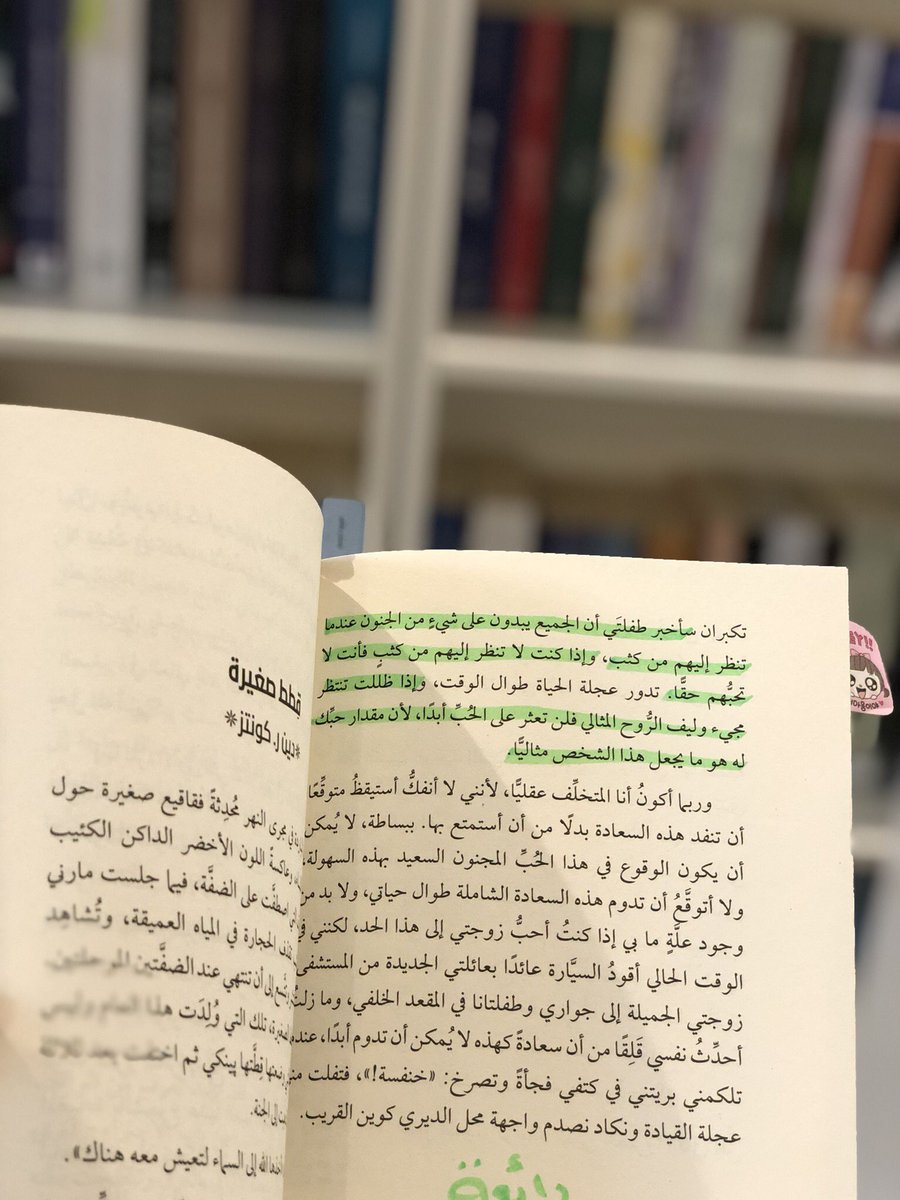 تكبران سأخبر طفلتَي أن الجميع يبدون على شيءٍ من الجنون عندما
تنظر إليهم من كثب، وإذا كنت لا تنظر إليهم من كثبٍ فأنت لا
تحبُّهم حقًّا. تدور عجلة الحياة طوال الوقت، وإذا ظللت تنتظر
مجيء وليف الرُّوح المثالي فلن تعثر على الحُبِّ أبدًا، لأن مقدار حبِّك
له هو ما يجعل هذا الشخص مثاليًّا.
وربما أكونُ أنا المتخلِّف عقليًّا، لأنني لا أنفكُّ أستيقظُ متوقِّعًا
أن تنفد هذه السعادة بدلًا من أن أستمتع بها. ببساطة، لا يُمكن
أن يكون الوقوع في هذا الحُبِّ المجنون السعيد بهذه السهولة،
ولا أتوقَّعُ أن تدوم هذه السعادة الشاملة طوال حياتي، ولا بد من
وجود علَّةٍ ما بي إذا كنتُ أحبُّ زوجتي إلى هذا الحد، لكنني في
الوقت الحالي أقودُ السيَّارة عائدًا بعائلتي الجديدة من المستشفى،
زوجتي الجميلة إلى جواري وطفلتانا في المقعد الخلفي، وما زلتُ
أحدِّثُ نفسي قَلِقًا من أن سعادةً كهذه لا يُمكن أن تدوم أبدًا، عندما
تلكمني بريتني في كتفي فجأةً وتصرخ: «خنفسة!»، فتفلت مني
عجلة القيادة ونكاد نصدم واجهة محل الديري كوين القريب.
رائعة
قطط صغيرة
*دين ر. كونتز*
في مجرى النهر مُحدِثةً فقاقيع صغيرة حول
وعاكسةً اللون الأخضر الداكن الكئيب
اصطفَّت على الضفَّة، فيما جلست مارني
الحجارة في المياه العميقة، وتُشاهِد
إلى أن تنتهي عند الضفَّتين الموحلتين.
تلك التي وُلِدَت هذا العام وليس
قِطَّتها پينكي ثم اختفت بعد ثلاثة
إلى الجنة.
الله إلى السماء لتعيش معه هناك».